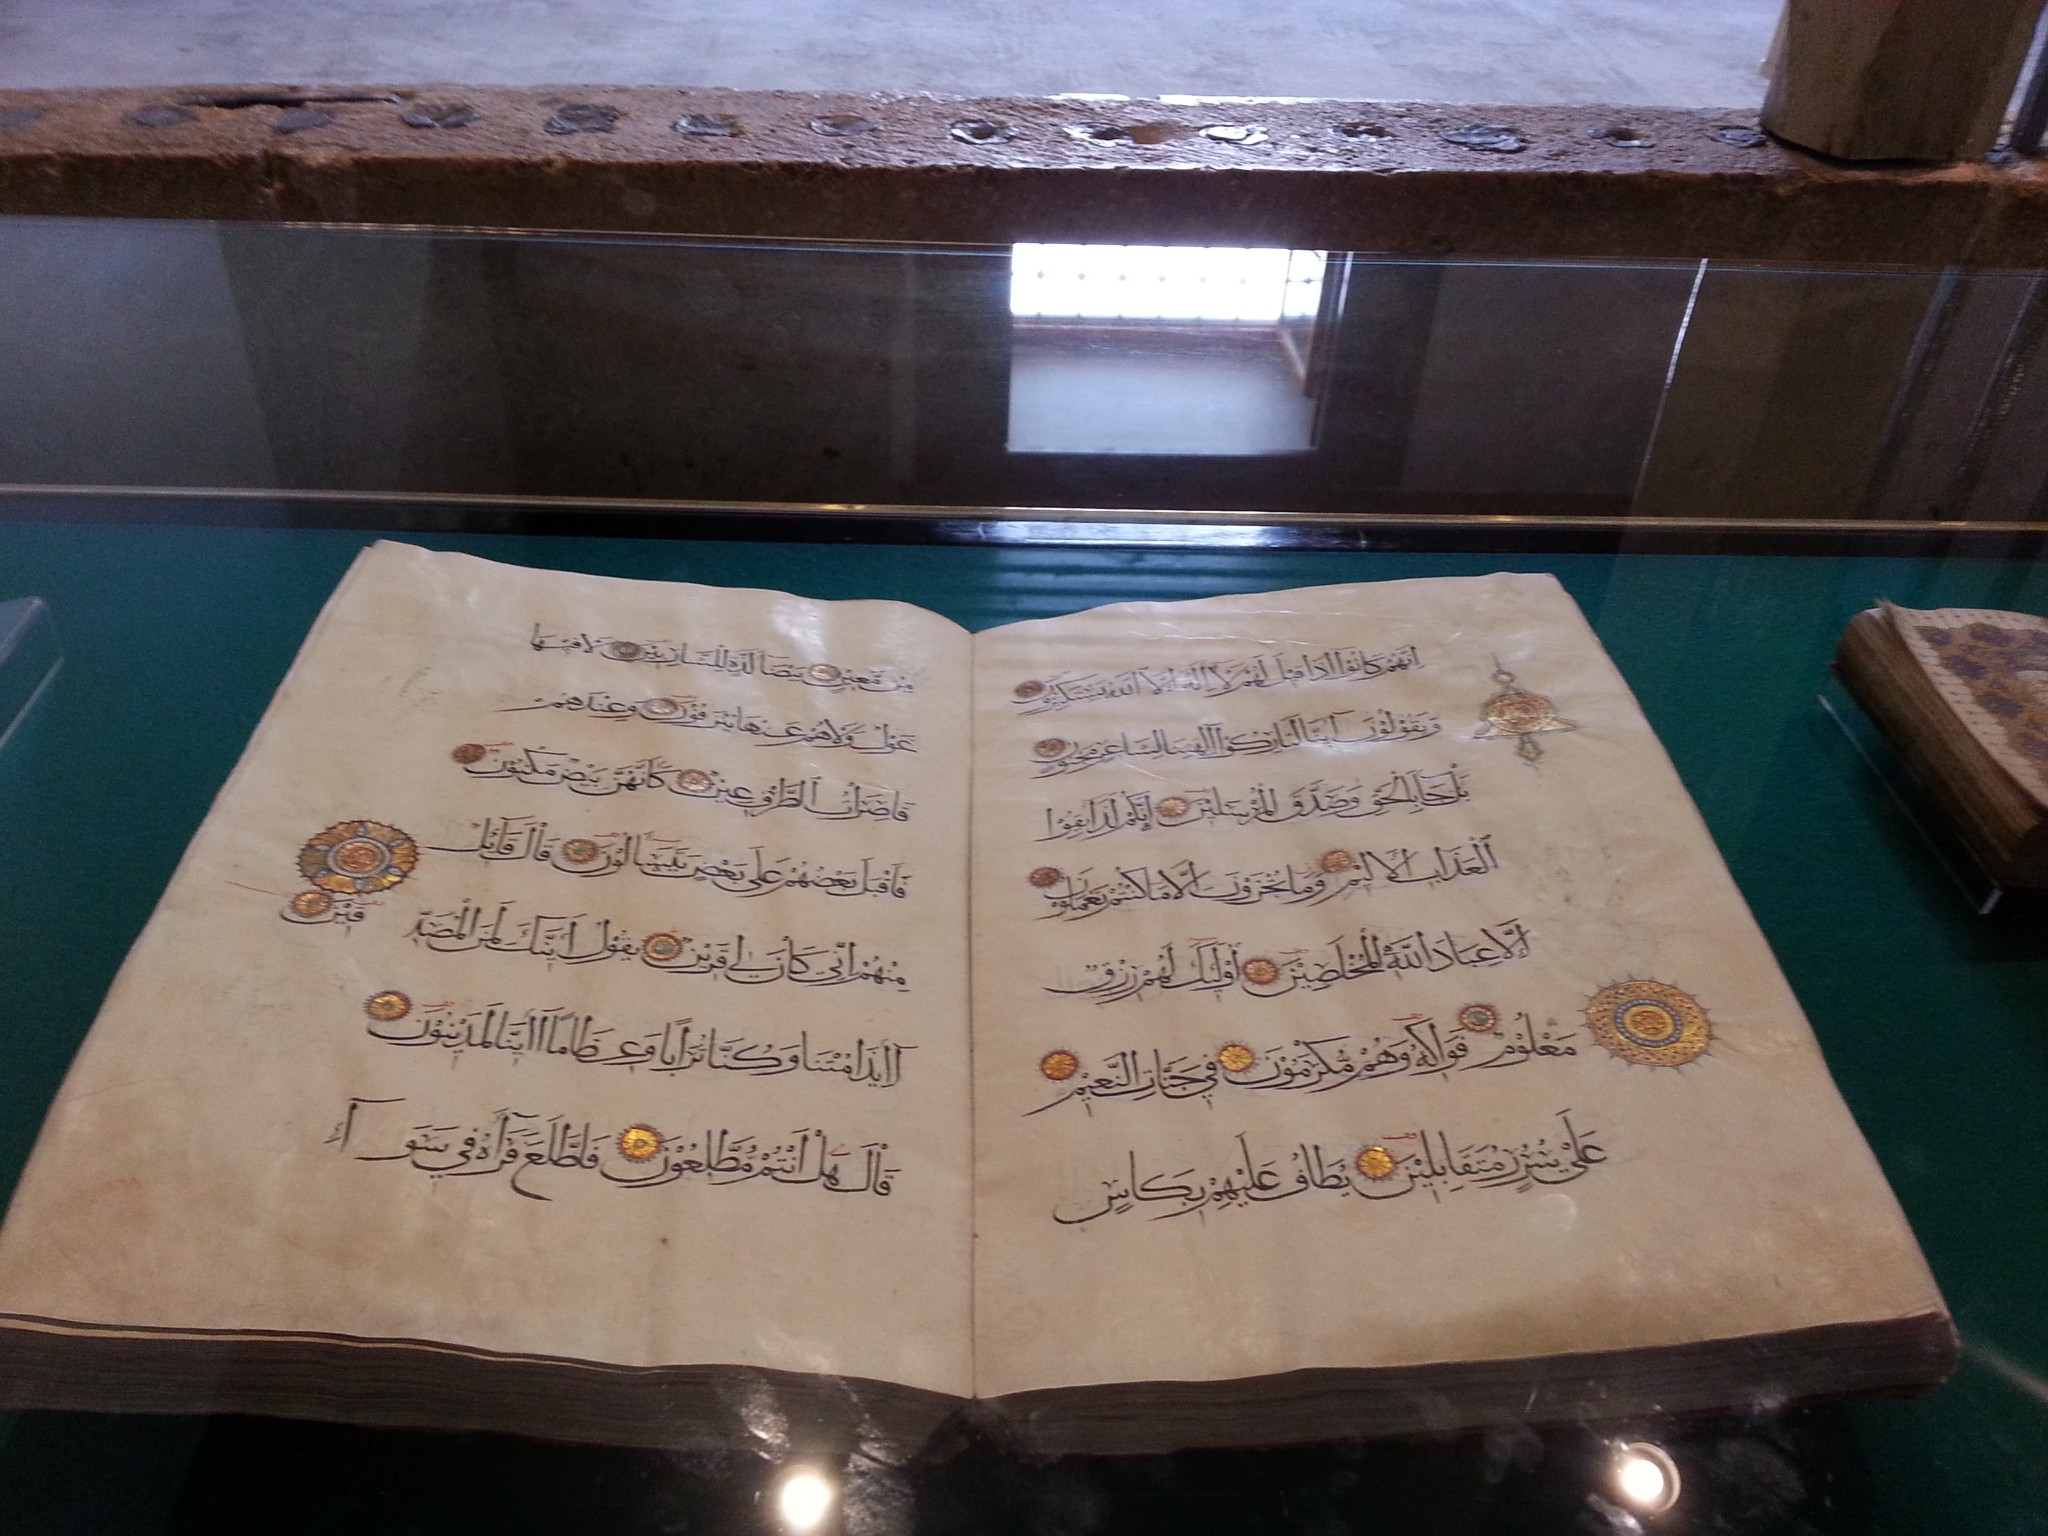 اِنَّهُمْ كَانُوْا اِذَا قِيْلَ لَهُمْ لَآ اِلٰهَ اِلَّا اللّٰهُ يَسْتَكْبِرُوْنَ
وَيَقُوْلُوْنَ اَئِنَّا لَتَارِكُوْٓا اٰلِهَتِنَا لِشَاعِرٍ مَجْنُوْنٍ
بَلْ جَآءَ بِالْحَقِّ وَصَدَّقَ الْمُرْسَلِيْنَ اِنَّكُمْ لَذَآئِقُوا
الْعَذَابِ الْاَلِيْمِ وَمَا تُجْزَوْنَ اِلَّا مَا كُنْتُمْ تَعْمَلُوْنَ
اِلَّا عِبَادَ اللّٰهِ الْمُخْلَصِيْنَ اُولٰٓئِكَ لَهُمْ رِزْقٌ
مَعْلُوْمٌ فَوَاكِهُ وَهُمْ مُّكْرَمُوْنَ فِيْ جَنَّاتِ النَّعِيْمِ
عَلٰى سُرُرٍ مُتَقَابِلِيْنَ يُطَافُ عَلَيْهِمْ بِكَاْسٍ
مِنْ مَّعِيْنٍ بَيْضَآءَ لَذَّةٍ لِلشَّارِبِيْنَ لَا فِيْهَا
غَوْلٌ وَّلَا هُمْ عَنْهَا يُنْزَفُوْنَ وَعِنْدَهُمْ
قَاصِرَاتُ الطَّرْفِ عِيْنٌ كَاَنَّهُنَّ بَيْضٌ مَكْنُوْنٌ
فَاَقْبَلَ بَعْضُهُمْ عَلٰى بَعْضٍ يَتَسَآءَلُوْنَ قَالَ قَآئِلٌ
مِنْهُمْ اِنِّيْ كَانَ لِيْ قَرِيْنٌ يَقُوْلُ اَئِنَّكَ لَمِنَ الْمُصَدِّ
قِيْنَ
ءَاِذَا مِتْنَا وَكُنَّا تُرَابًا وَعِظَامًا ءَاِنَّا لَمَدِيْنُوْنَ
قَالَ هَلْ اَنْتُمْ مُّطَّلِعُوْنَ فَاطَّلَعَ فَرَاٰهُ فِيْ سَوَآءِ